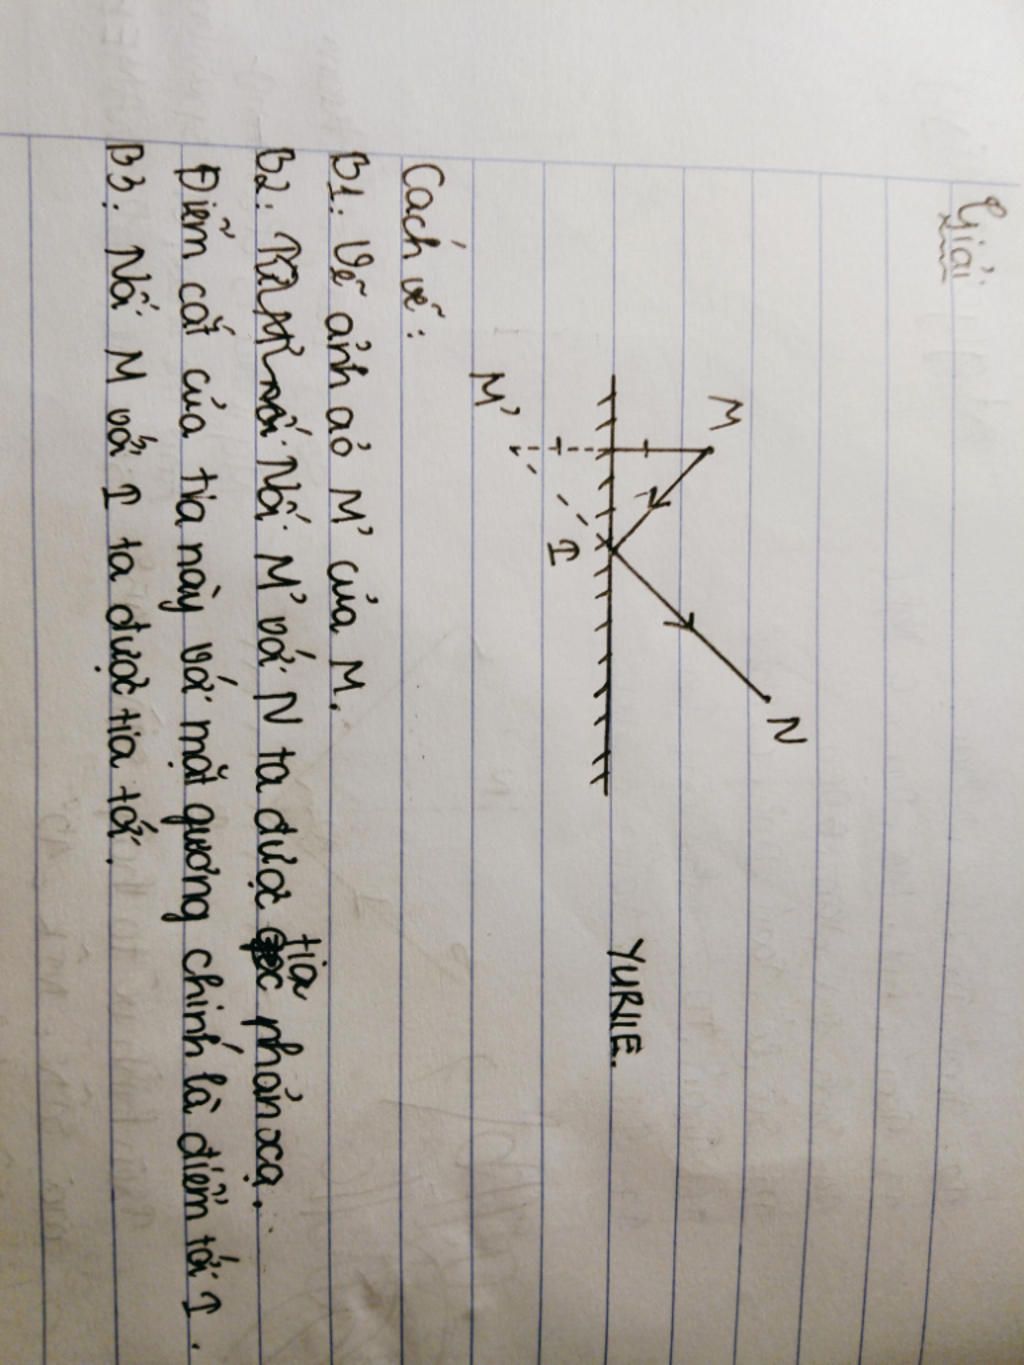 Giải
M
N
I
M'
YURIIE.
Cách vẽ:
B1: Vẽ ảnh ảo M' của M.
B2: Nối M' với N ta được tia phản xạ.
Điểm cắt của tia này với mặt gương chính là điểm tới I.
B3: Nối M với I ta được tia tới.